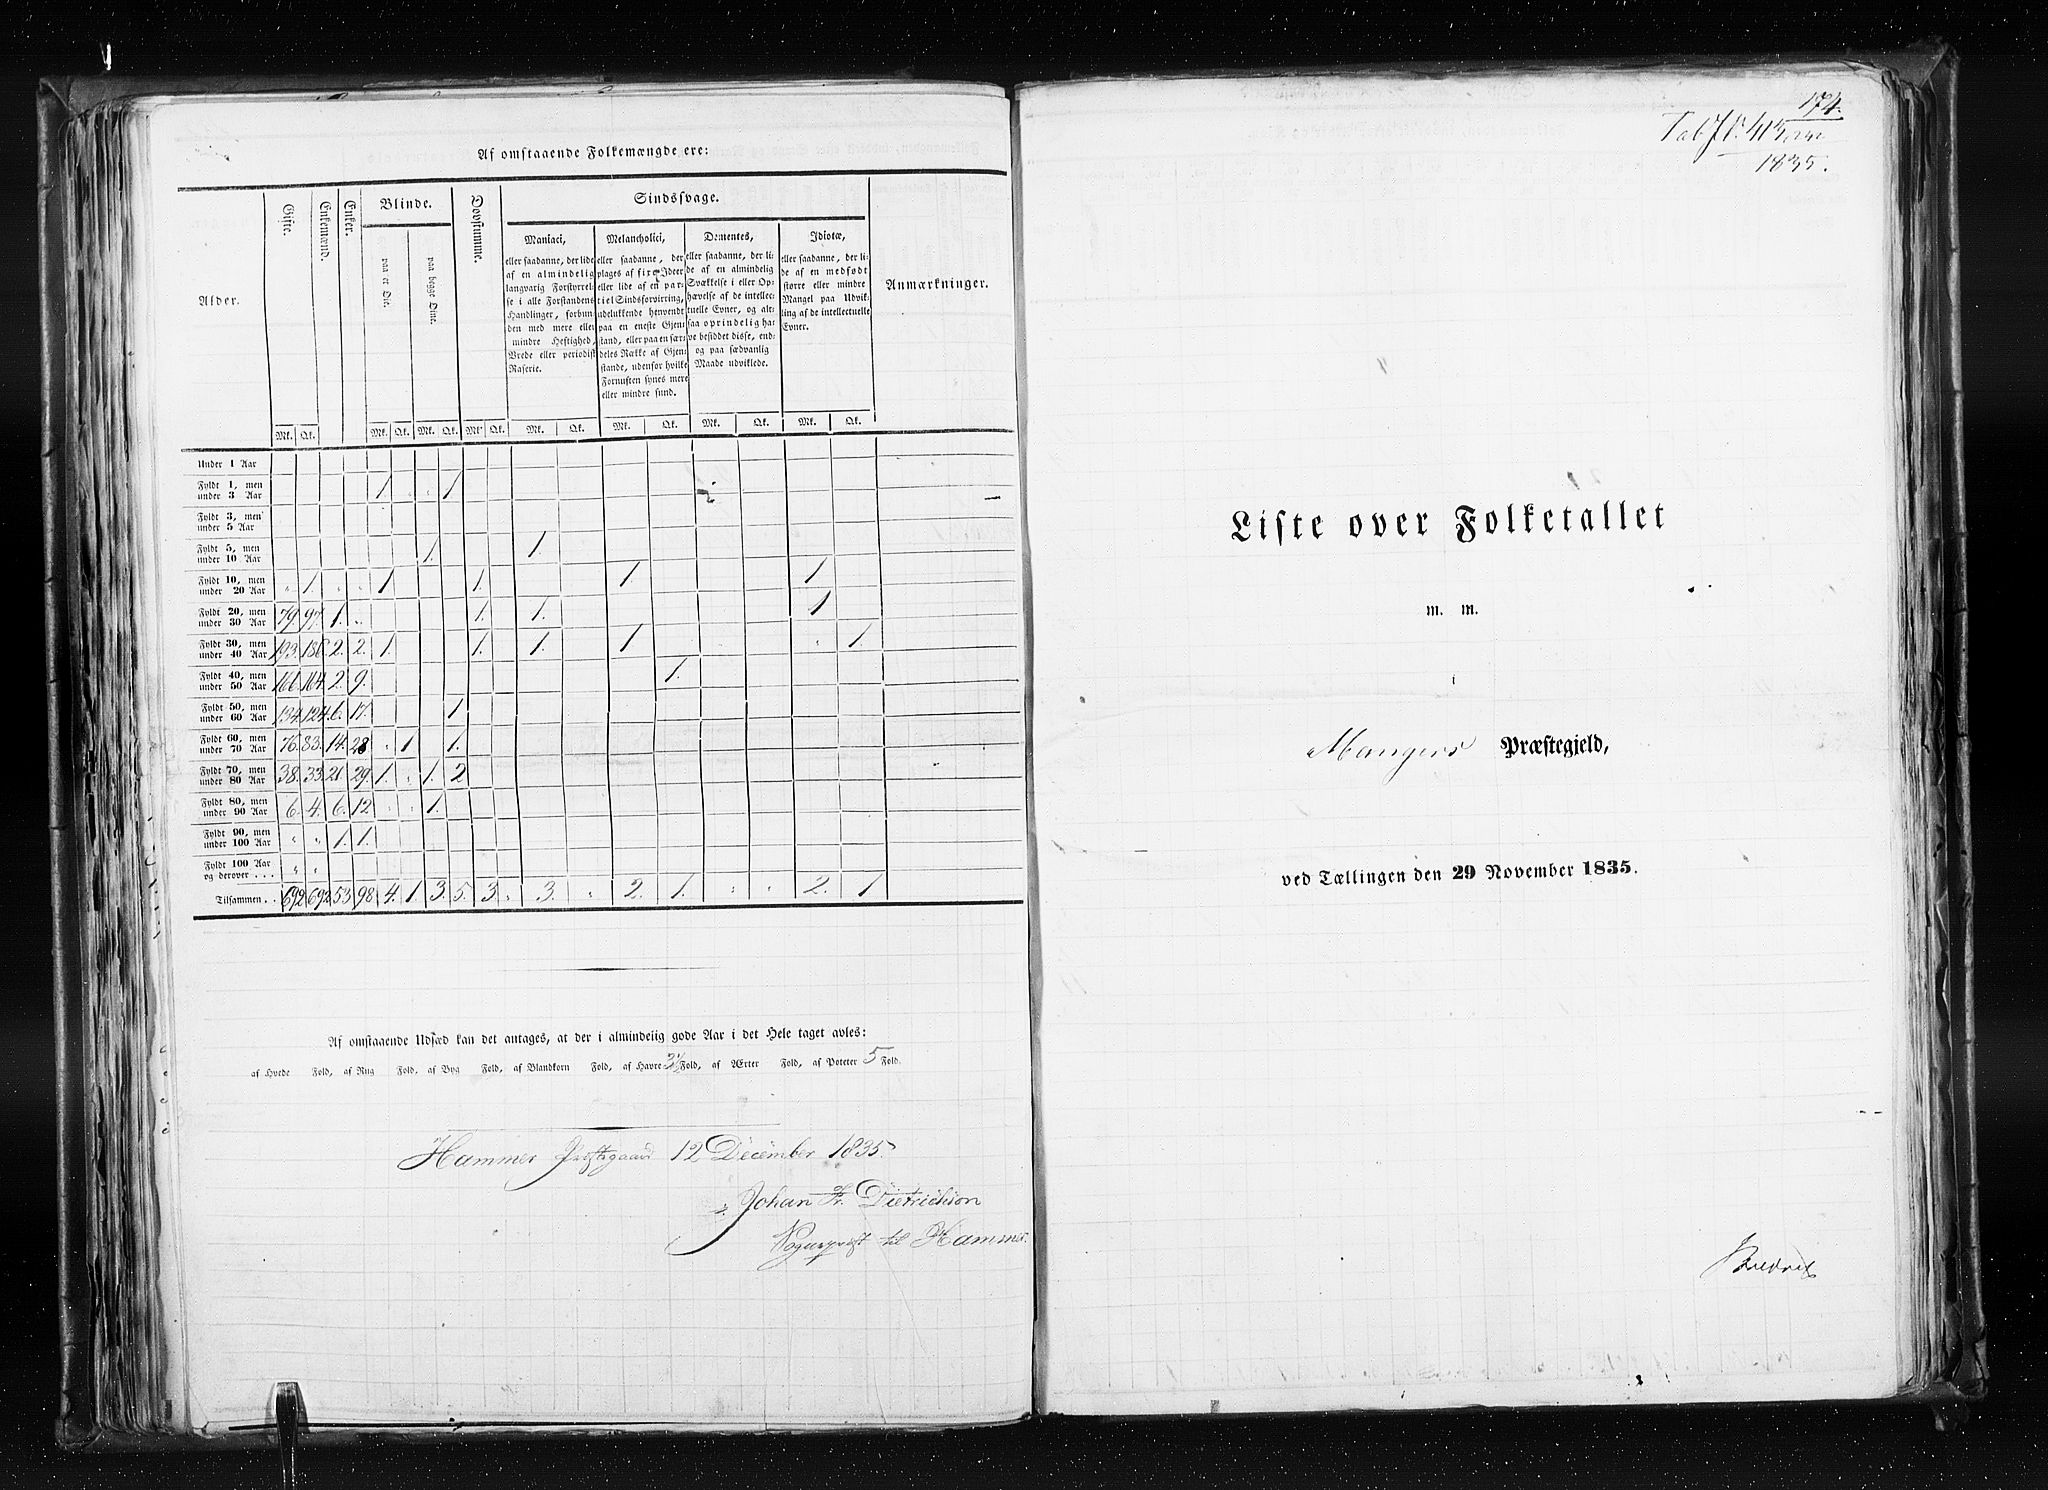 Af omstaaende Folkemængde ere:
Alder.
Gifte.
Enkemænd.
Enker.
Blinde.
paa et Øie.
paa begge Øine.
Døvstumme.
Sindssvage.
Maniaci,
eller saadanne, der lide
af en almindelig
langvarig Forstyrrel-
se i alle Forstandens
Handlinger, forbun-
den med mere eller
mindre Heftighed,
Vrede eller periodisk
Raserie.
Melancholici,
eller saadanne, der
plages af fixe Ideer
eller lide af en par-
tiel Sindsforvirring,
udelukkende henvendt
paa en eneste Gjen-
stand, eller paa en sær-
deles Række af Gjen-
stande, udenfor hvilke
Fornuften synes mere
eller mindre sund.
Dementes,
eller saadanne, der li-
de af en almindelig
Svækkelse i eller Op-
hævelse af de intellec-
tuelle Evner, og alt-
saa oprindelig ha-
ve besiddet disse, end-
og paa sædvanlig
Maade udviklede.
Idiotæ,
eller saadanne, der li-
de af en medfødt
større eller mindre
Mangel paa Udvik-
ling af de intellectuelle
Evner.
Anmærkninger.
Mk. Qk. Mk. Qk. Mk. Qk. Mk. Qk. Mk. Qk. Mk. Qk. Mk. Qk. Mk. Qk.
Under 1 Aar
Fyldt 1, men
under 3 Aar 1 1
Fyldt 3, men
under 5 Aar
Fyldt 5, men
under 10 Aar 1. 1
Fyldt 10, men
under 20 Aar " 1. " " 1 1. 1. 1
Fyldt 20, men
under 30 Aar 79. 97. 1. " 1. 1. 1
Fyldt 30, men
under 40 Aar 193. 186. 2. 2. 1. 1. 1. 1 " 1.
Fyldt 40, men
under 50 Aar 166. 164. 2. 9. 1.
Fyldt 50, men
under 60 Aar 134. 124. 6. 17. 1
Fyldt 60, men
under 70 Aar 76. 83. 14. 28 " 1 1.
Fyldt 70, men
under 80 Aar 38. 33. 21. 29. 1. " 1. 2
Fyldt 80, men
under 90 Aar 6. 4. 6. 12 " " 1.
Fyldt 90, men
under 100 Aar " " 1. 1.
Fyldt 100 Aar
og derover . . . " "
Tilsammen . . 692 692 53 98 4. 1 3. 5. 3. " 3. " 2. 1. " " 2. 1
Af omstaaende Udsæd kan det antages, at der i almindelig gode Aar i det Hele taget avles:
af Hvede Fold, af Rug Fold, af Byg Fold, af Blandkorn Fold, af Havre 3½ Fold, af Ærter Fold, af Poteter 5 Fold.
Hammer Præstegaard 12 December 1835.
Johan Fr. Dietrichson
Sogneprest til Hammer.
174.
1835.
Liste over Folketallet
m. m.
i
Mangers Præstegjeld,
ved Tællingen den 29 November 1835.